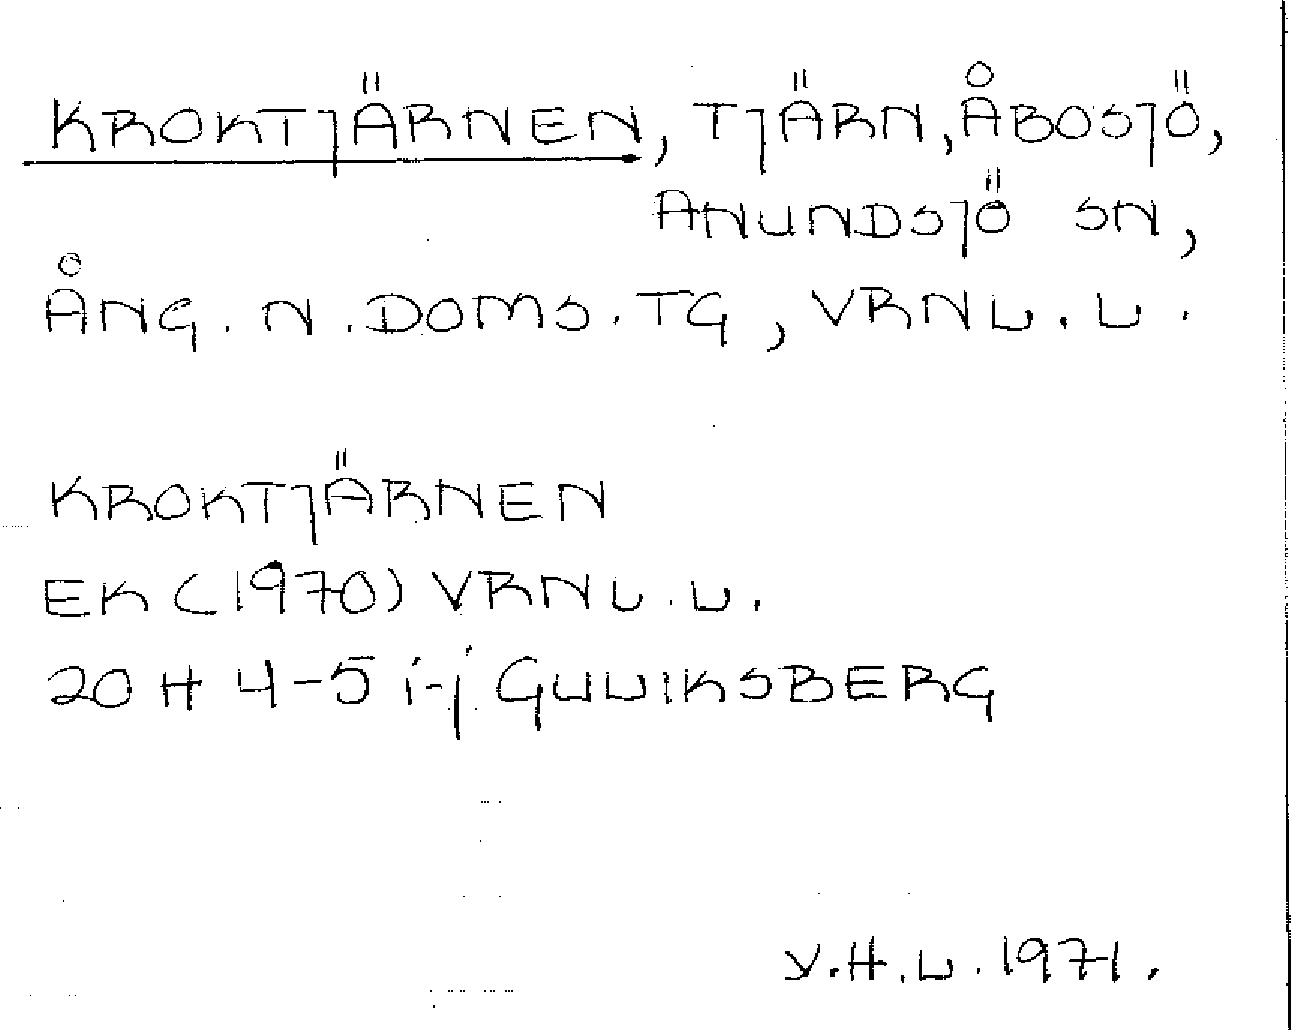 KROKTJÄRNEN, TJÄRN, ÅBOSJÖ,
ANUNDSJÖ SN,
ÅNG. N. DOMS. TG, VRNL. L.
KROKTJÄRNEN
EK (1970) VRNL. L.
20 H 4-5 i-j GULIKSBERG
Y.H.L. 1971.